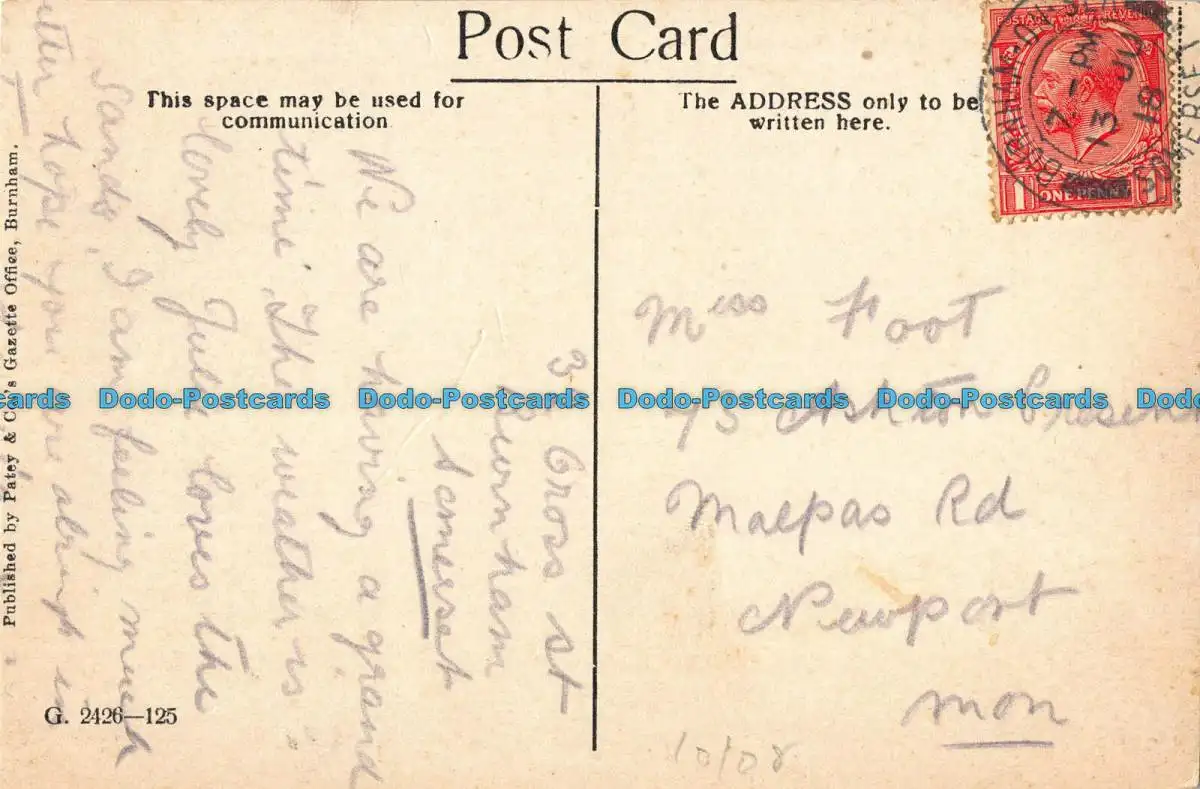 Post Card
This space may be used for
communication
The ADDRESS only to be
written here.
POSTAGE REVENUE
1 ONE PENNY 1
BURNHAM-ON-SEA
7 - PM
13 JU
18
SOMERSET
3 Cross st
Burnham
Somerset
We are having a grand
time. The weather is
lovely Jule loves the
Sands, I am feeling much
hope you are alright in
Miss Foot
73 Ashton Cresent
Malpas Rd
Newport
Mon
10/08
Published by Patey & Co.'s Gazette Office, Burnham.
G. 2426—125
Dodo-Postcards Dodo-Postcards Dodo-Postcards Dodo-Postcards